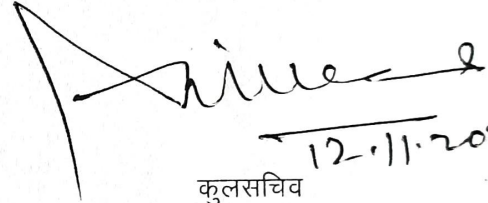 12.11.20
कुलसचिव